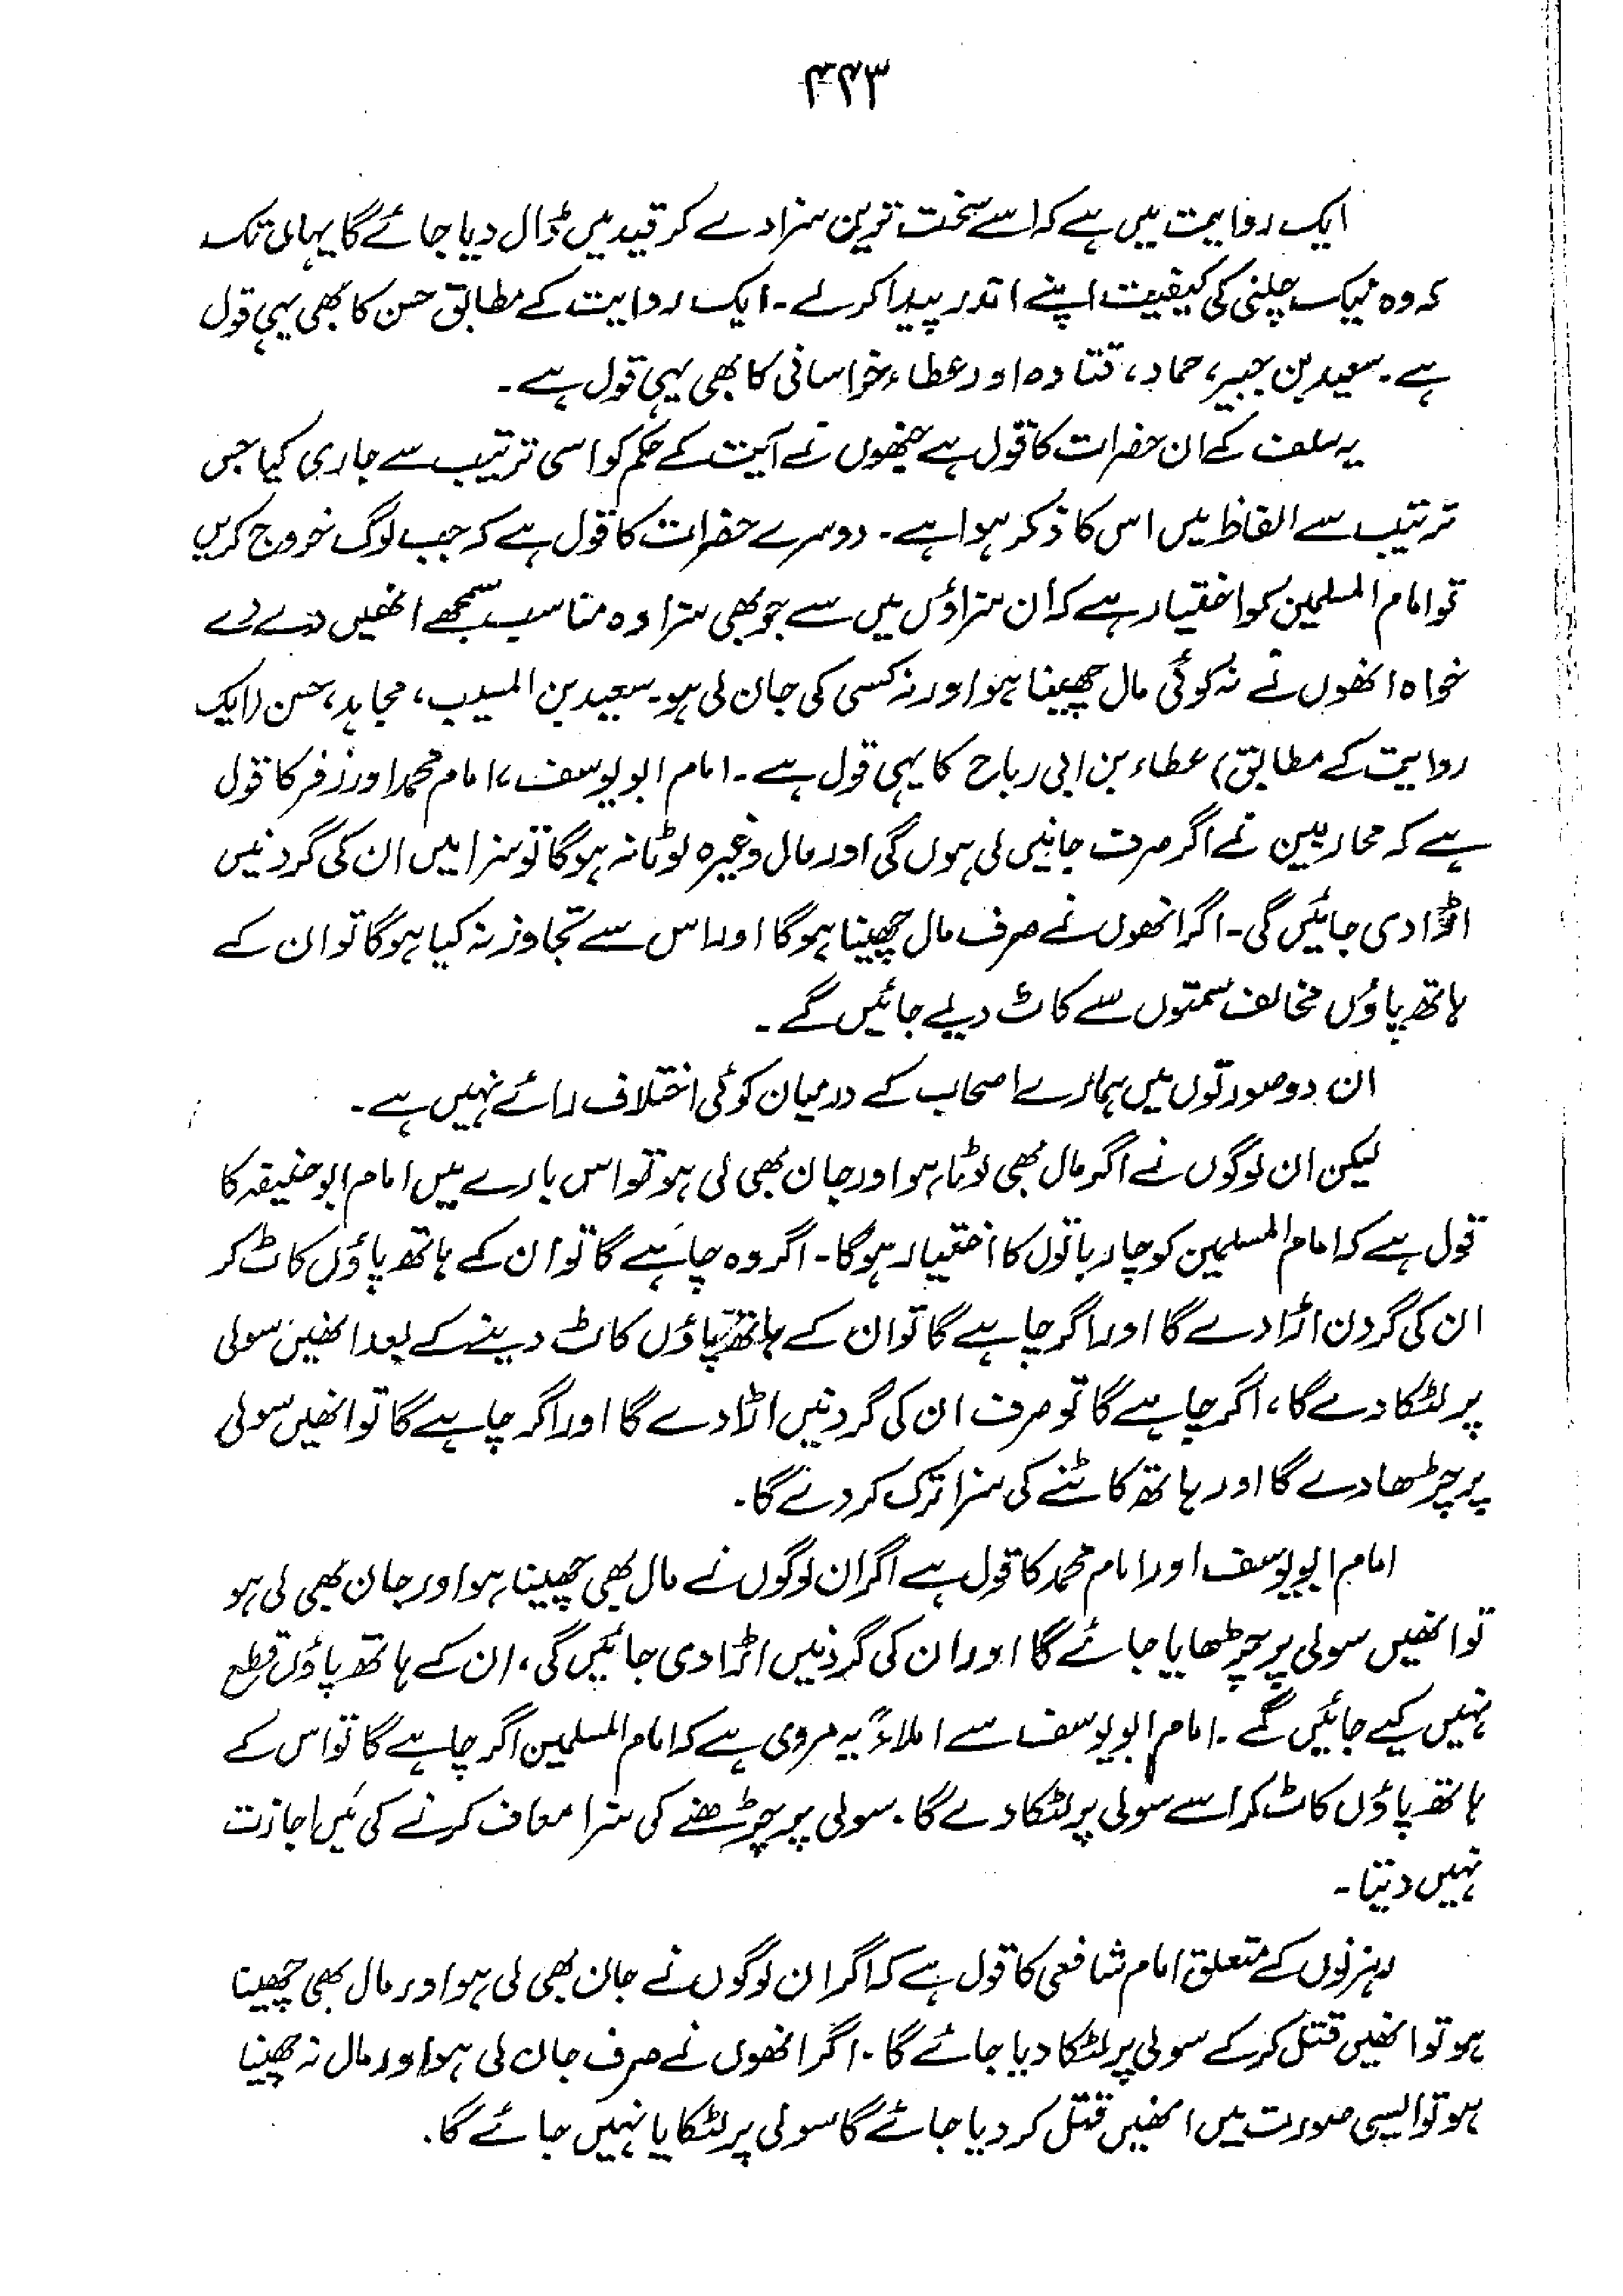 ۴۲۳
ایک روایت میں ہے کہ اسے سخت ترین سزا دے کر قید میں ڈال دیا جائے گا یہاں تک
کہ وہ نیک چلنی کی کیفیت اپنے اندر پیدا کرلے۔ ایک روایت کے مطابق حسن کا بھی یہی قول
ہے۔ سعید بن جبیر، حماد، قتادہ اور عطاء خراسانی کا بھی یہی قول ہے۔
یہ سلف کے ان حضرات کا قول ہے جنھوں نے آیت کے حکم کو اسی ترتیب سے جاری کیا جس
ترتیب سے الفاظ میں اس کا ذکر ہوا ہے۔ دوسرے حضرات کا قول ہے کہ جب لوگ خروج کریں
تو امام المسلمین کو اختیار ہے کہ ان سزاؤں میں سے جو بھی سزا وہ مناسب سمجھے انھیں دے دے
خواہ انھوں نے نہ کوئی مال چھینا ہو اور نہ کسی کی جان لی ہو۔ سعید بن المسیب، مجاہد، حسن (ایک
روایت کے مطابق) عطاء بن ابی رباح کا یہی قول ہے۔ امام ابو یوسف، امام محمد اور زفر کا قول
ہے کہ محاربین نے اگر صرف جانیں لی ہوں گی اور مال وغیرہ لوٹا نہ ہوگا تو سزا میں ان کی گردنیں
اڑا دی جائیں گی۔ اگر انھوں نے صرف مال چھینا ہوگا اور اس سے تجاوز نہ کیا ہوگا تو ان کے
ہاتھ پاؤں مخالف سمتوں سے کاٹ دیے جائیں گے۔
ان دو صورتوں میں ہمارے اصحاب کے درمیان کوئی اختلاف رائے نہیں ہے۔
لیکن ان لوگوں نے اگر مال بھی لوٹا ہو اور جان بھی لی ہو تو اس بارے میں امام ابو حنیفہ کا
قول ہے کہ امام المسلمین کو چار باتوں کا اختیار ہوگا۔ اگر وہ چاہے گا تو ان کے ہاتھ پاؤں کاٹ کر
ان کی گردن اڑا دے گا اور اگر چاہے گا تو ان کے ہاتھ پاؤں کاٹ دینے کے بعد انھیں سولی
پر لٹکا دے گا، اگر چاہے گا تو صرف ان کی گردنیں اڑا دے گا اور اگر چاہے گا تو انھیں سولی
پر چڑھا دے گا اور ہاتھ کاٹنے کی سزا ترک کر دے گا۔
امام ابو یوسف اور امام محمد کا قول ہے اگر ان لوگوں نے مال بھی چھینا ہو اور جان بھی لی ہو
تو انھیں سولی پر چڑھایا جائے گا اور ان کی گردنیں اڑا دی جائیں گی، ان کے ہاتھ پاؤں قطع
نہیں کیے جائیں گے۔ امام ابو یوسف سے املاءً یہ مروی ہے کہ امام المسلمین اگر چاہے گا تو اس کے
ہاتھ پاؤں کاٹ کر اسے سولی پر لٹکا دے گا۔ سولی پر چڑھنے کی سزا معاف کرنے کی میں اجازت
نہیں دیتا۔
رہزنوں کے متعلق امام شافعی کا قول ہے کہ اگر ان لوگوں نے جان بھی لی ہو اور مال بھی چھینا
ہو تو انھیں قتل کرکے سولی پر لٹکا دیا جائے گا۔ اگر انھوں نے صرف جان لی ہو اور مال نہ چھینا
ہو تو ایسی صورت میں انھیں قتل کر دیا جائے گا سولی پر لٹکایا نہیں جائے گا۔